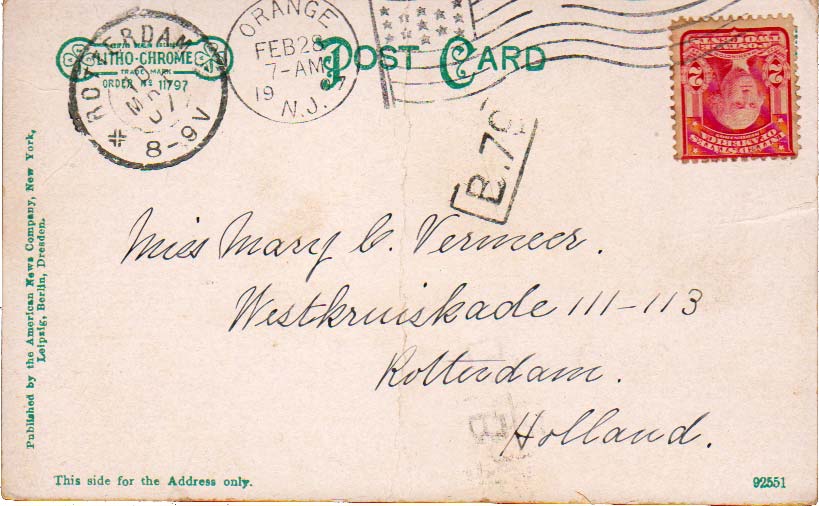 LITHO-CHROME
TRADE MARK
ORDER Nº 11797
ROTTERDAM
8-9V
ORANGE
FEB 28
7-AM
19 7
N.J.
POST CARD
B.79
2 2
UNITED STATES
OF AMERICA
Miss Mary C. Vermeer.
Westkruiskade 111-113
Rotterdam.
Holland.
Published by the American News Company, New York,
Leipzig, Berlin, Dresden.
This side for the Address only.
92551